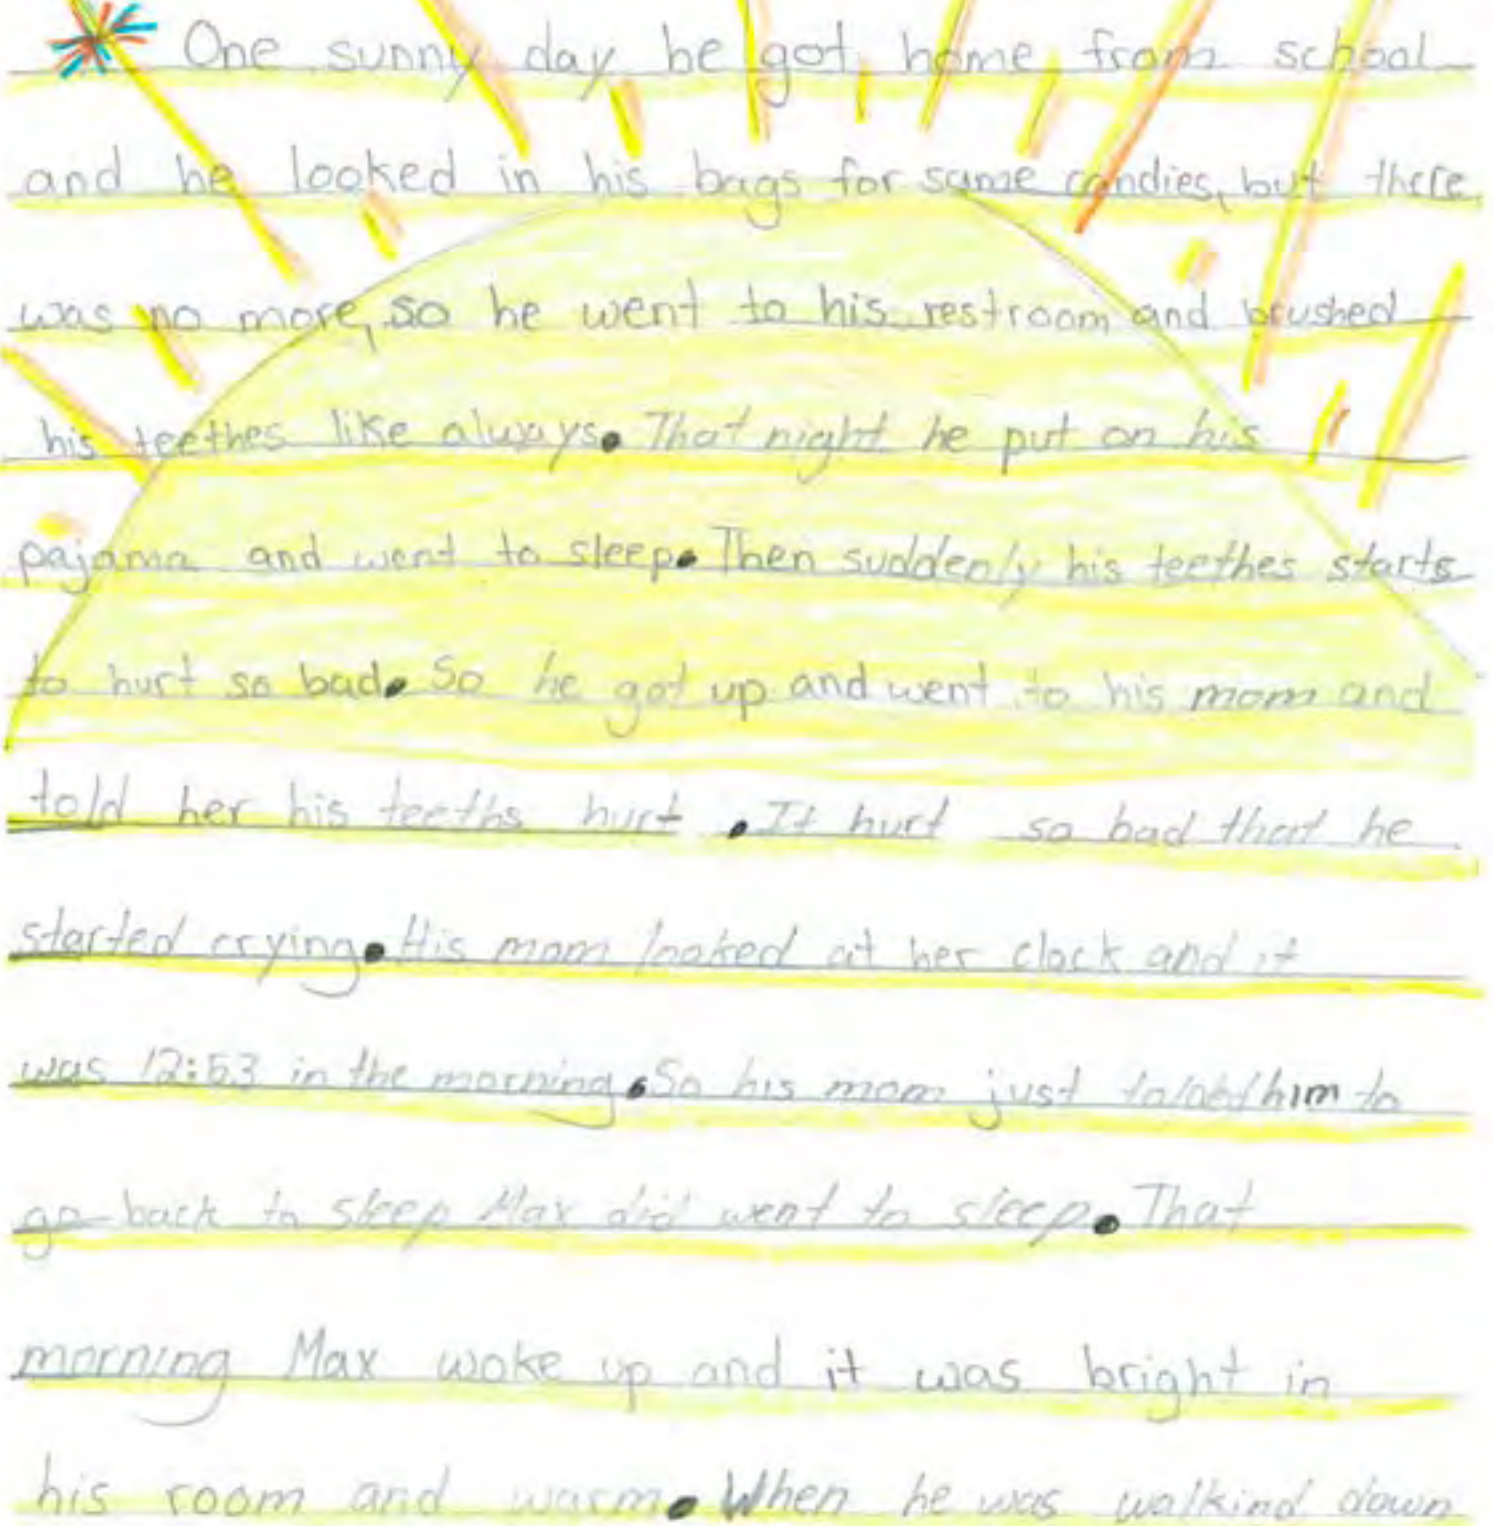 One sunny day he got home from school
and he looked in his bags for some candies, but there
was no more, so he went to his restroom and brushed
his teethes like always. That night he put on his
pajama and went to sleep. Then suddenly his teethes starts
to hurt so bad. So he got up and went to his mom and
told her his teeths hurt. It hurt so bad that he
started crying. His mom looked at her clock and it
was 12:53 in the morning. So his mom just him to
go back to sleep Max did went to sleep. That
morning Max woke up and it was bright in
his room and warm. When he was walkind down